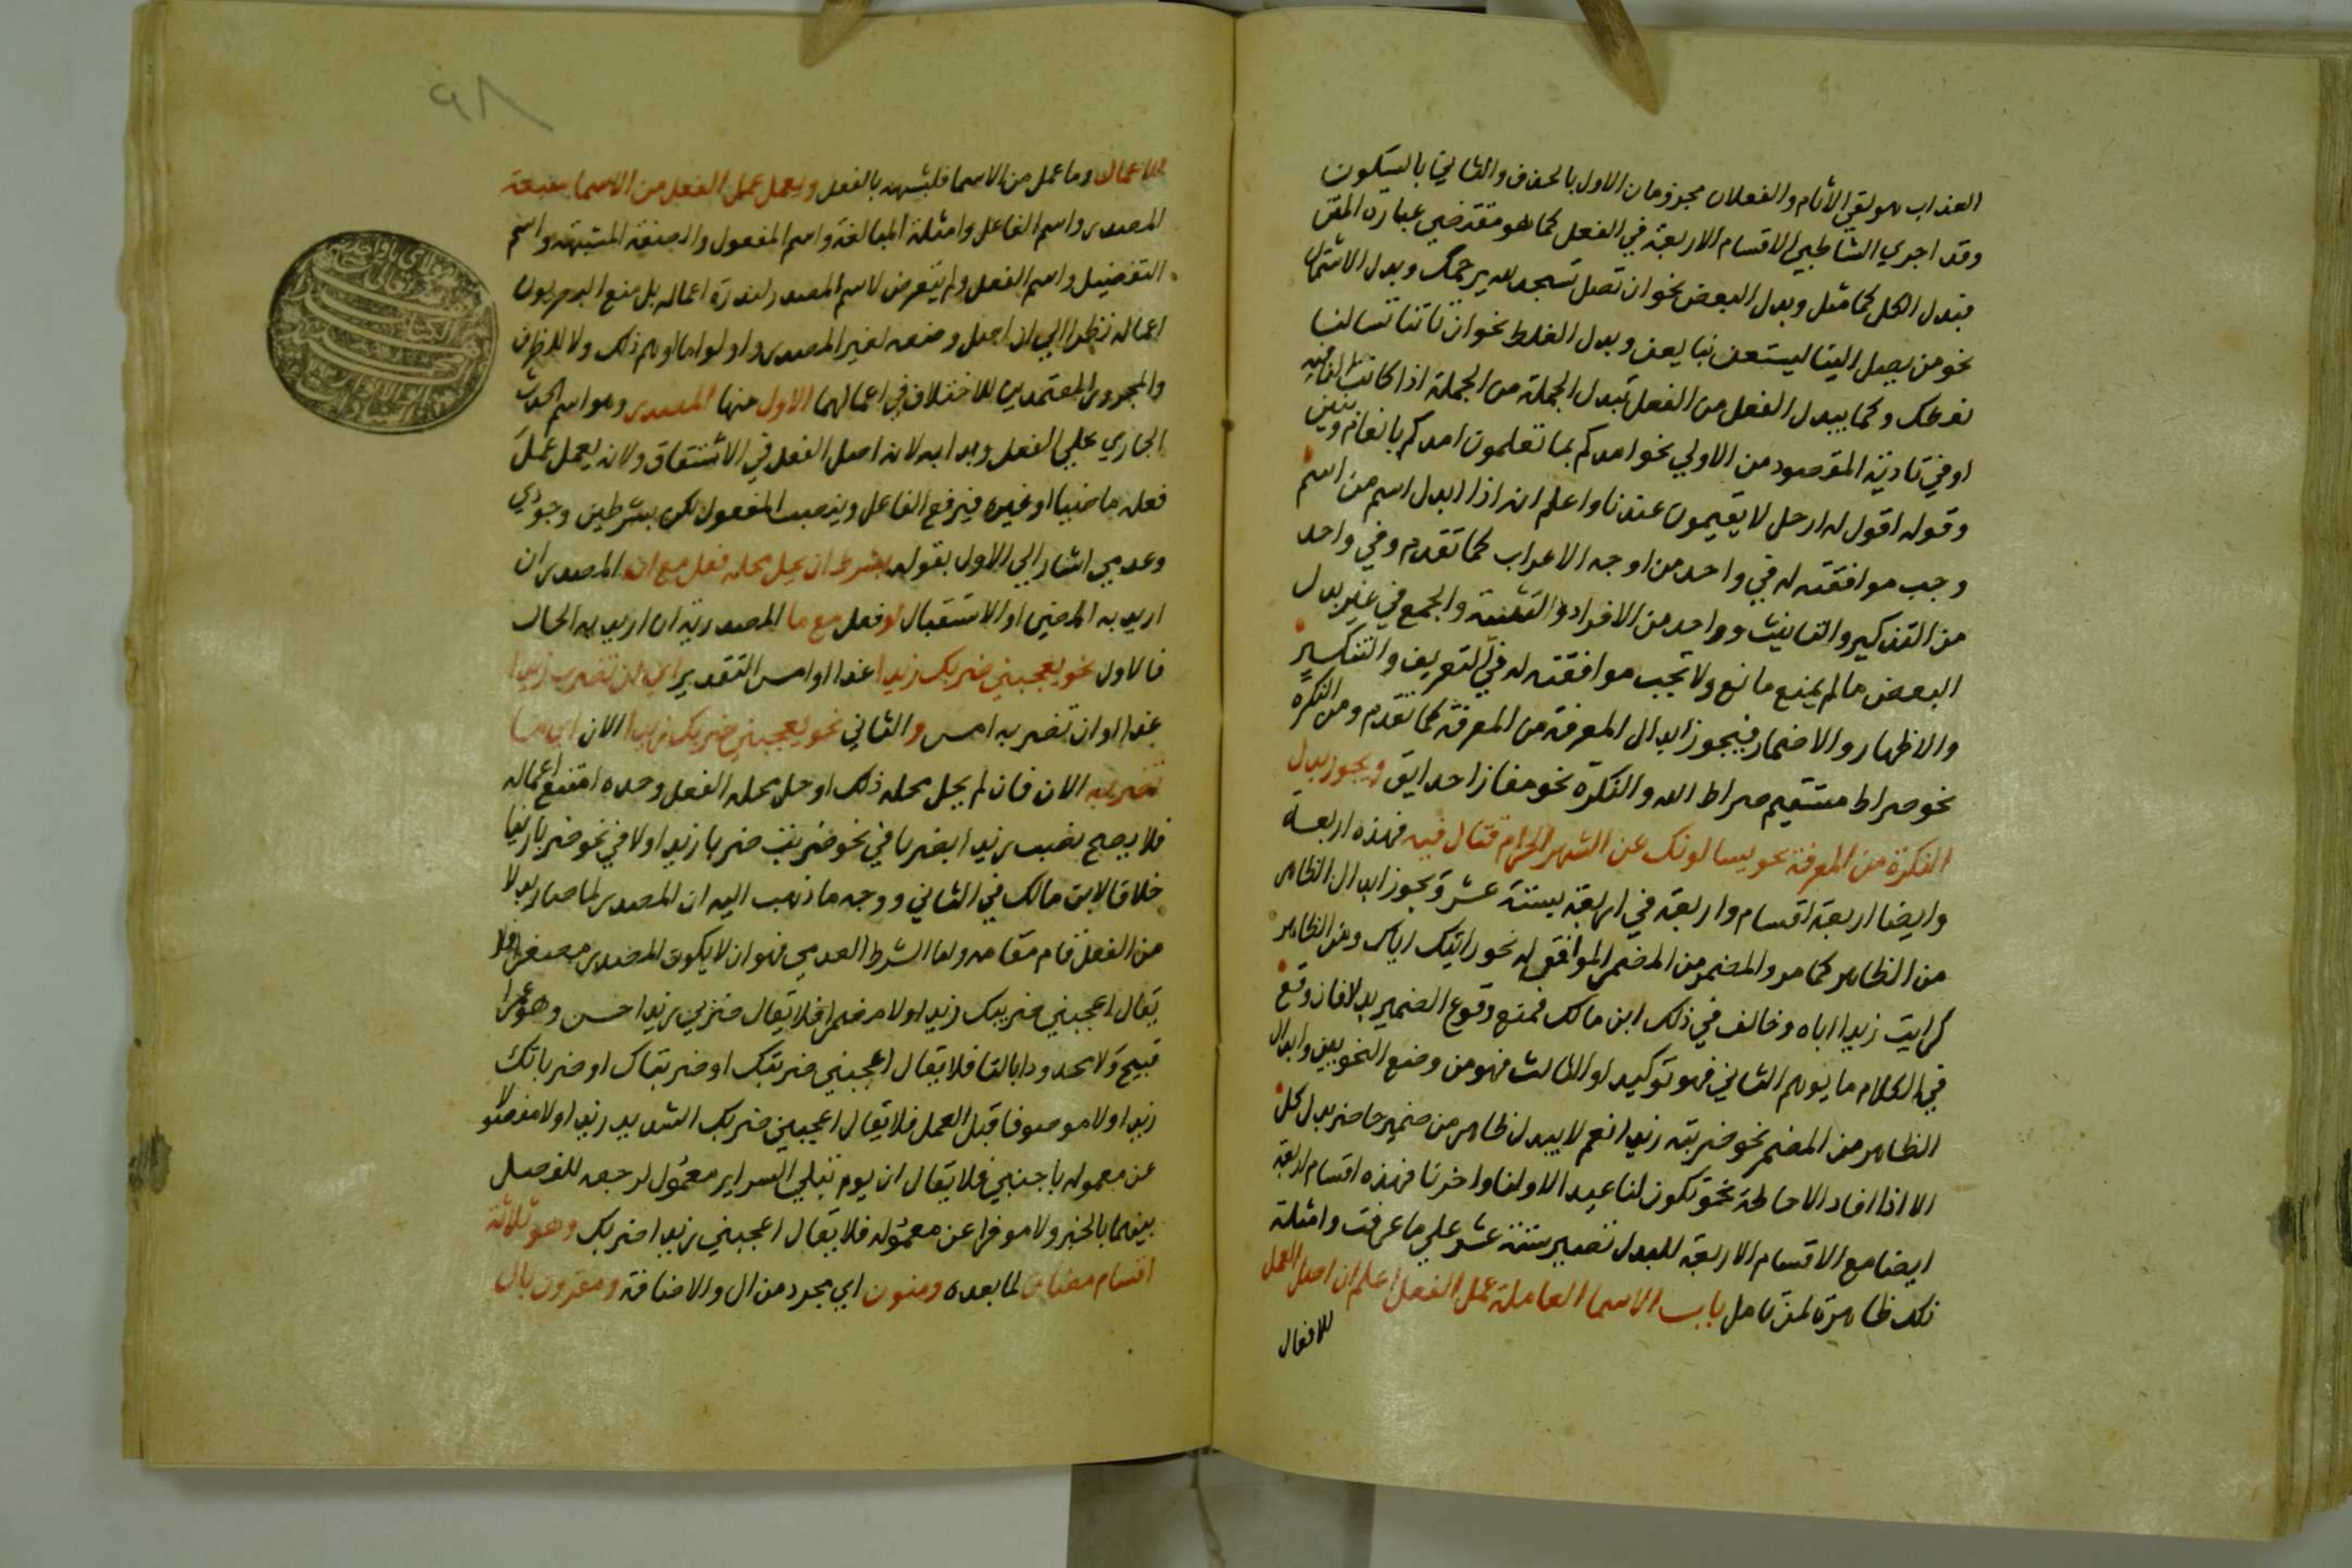 العذاب هو لقي الاثام والفعلان مجزومان الاول بالحذف والثاني بالسكون
وقد اجري الشاطبي الاقسام الاربعة في الفعل كما هو مقتضي عباره المتن
فبدل الكل كما مثل وبدل البعض نحو ان تصل تسجد لله يرحمك وبدل الاشتمال
نحو من يصل الينا يستعن بنا يعن وبدل الغلط نحو ان تاتنا تسالنا
نعطك وكما يبدل الفعل من الفعل تبدل الجملة من الجملة اذا كانت الثانيه
اوفي تادية المقصود من الاولي نحو امدكم بما تعلمون امدكم بانعام وبنين
وقوله اقول له ارحل لا تقيمون عندنا واعلم انه اذا ابدل اسم من اسم
وجب موافقته له في واحد من اوجه الاعراب كما تقدم وفي واحد
من التذكير والتانيث وواحد من الافراد والتثنية والجمع في غير بدل
البعض ما لم يمنع مانع ولا تجب موافقته له في التعريف والتنكير
والاظهار والاضمار فيجوز ابدال المعرفة من المعرفة كما تقدم ومن النكره
نحو صراط مستقيم صراط الله والنكرة نحو مفازا حدايق ويجوز بدل
النكرة من المعرفة نحو يسالونك عن الشهر الحرام قتال فيه فهذه اربعة
وايضا اربعة اقسام واربعة في اربعة بستة عشر ويجوز ابدال الظاهر
من الظاهر كما مر والمضمر من المضمر الموافق له نحو رايتك اياك ومن الظاهر
كرايت زيدا اياه وخالف في ذلك ابن مالك فمنع وقوع الضمير بدلا فان وقع
في الكلام ما يوهم الثاني فهو توكيد او الثالث فهو من وضع النحويين وابدال
الظاهر من المضمر نحو ضربته زيدا نعم لا يبدل ظاهر من ضمير حاضر بدل كل
الا اذا افاد الاحاطة نحو تكون لنا عيدا لاولنا واخرنا فهذه اقسام اربعة
ايضا مع الاقسام الاربعة للبدل تصير ستة عشر علي ما عرفت وامثلة
ذلك ظاهرة لمن تامل باب الاسما العاملة عمل الفعل اعلم ان اصل العمل
للافعال
٩٨
للافعال وما عمل من الاسما فلشبهه بالفعل ويعمل عمل الفعل من الاسما سبعة
المصدر واسم الفاعل وامثلة المبالغة واسم المفعول والصفة المشبهة واسم
التفضيل واسم الفعل ولم يتعرض لاسم المصدر لندرة اعماله بل منع البصريون
اعماله نظرا الي ان اصل وضعه لغير المصدر واولوا ما اوهم ذلك ولا للظرف
والمجرور المعتمدين للاختلاف في اعمالهما الاول منها المصدر وهو اسم الحدث
الجاري علي الفعل وبدا به لانه اصل الفعل في الاشتقاق ولانه يعمل عمل
فعله ماضيا او غيره فيرفع الفاعل وينصب المفعول لكن بشرطين وجودي
وعدمي اشار الي الاول بقوله بشرط ان يحل محله فعل مع ان المصدر ان
اريد به المضي او الاستقبال او فعل مع ما المصدرية ان اريد به الحال
فالاول نحو يعجبني ضربك زيدا غدا او امس التقدير اي ان تضرب زيدا
غدا او ان تضربه امس والثاني نحو يعجبني ضربك زيدا الان اي ما
تضربه الان فان لم يحل محله ذلك او حل محله الفعل وحده امتنع اعماله
فلا يصح نصب زيدا بضربا في نحو ضربت ضربا زيدا ولا في نحو ضربا زيدا
خلافا لابن مالك في الثاني ووجه ما ذهب اليه ان المصدر لما صار بدلا
من الفعل قام مقامه واما الشرط العدمي فهو ان لا يكون المصدر مصغرا فلا
يقال اعجبني ضريبك زيدا ولا مضمرا فلا يقال ضربي زيدا حسن وهو عمرا
قبيح ولا محدودا بالتا فلا يقال اعجبني ضربتك او ضربتاك او ضرباتك
زيدا ولا موصوفا قبل العمل فلا يقال اعجبني ضربك الشديد زيدا ولا مفصولا
عن معموله باجنبي فلا يقال ان يوم تبلي السراير معمول لرجعه للفصل
بينهما بالخبر ولا موخرا عن معموله فلا يقال اعجبني زيدا ضربك وهو ثلاثة
اقسام مضاف لما بعده ومنون اي مجرد من ال والاضافة ومقرون بال